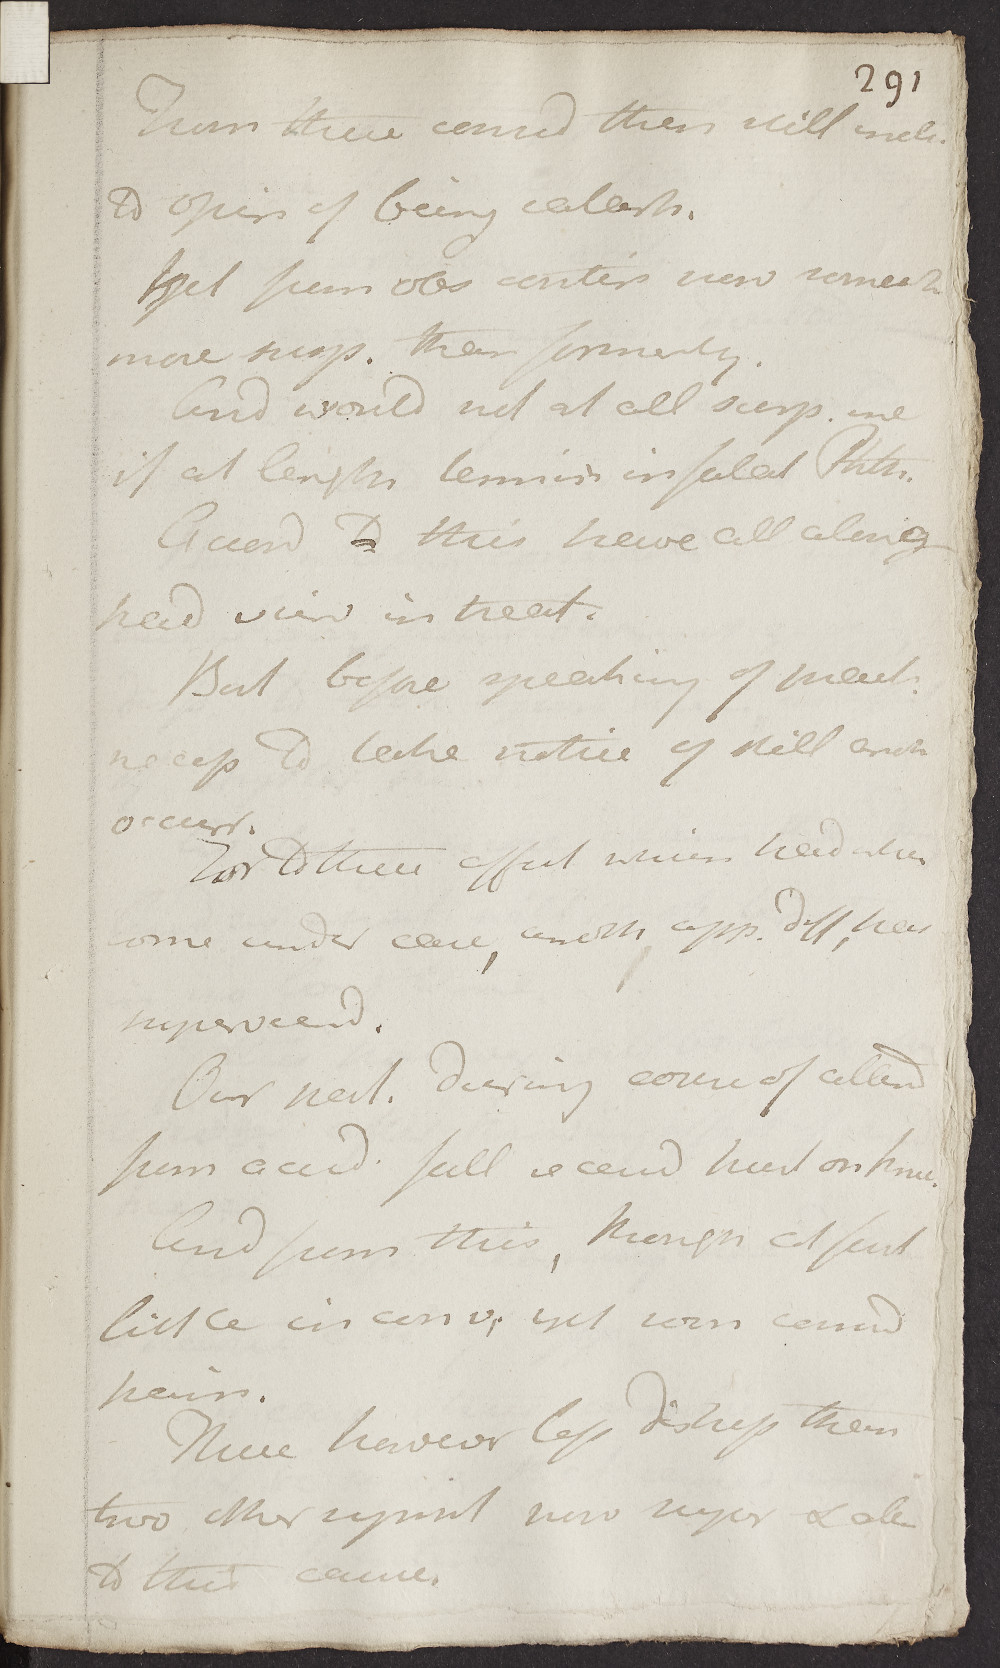 291
From these consid then still incl.
to opin of being catarrh.
Yet from obs contin now somewh
more susp. than formerly.
And would not at all surp. me
if at length termin in fatal Phth.
Guard to this have all along
had view in treat.
But before speaking of treat.
necess to take notice of still anoth
occurr.
For to these affect which had when
come under care, anoth, app. diff, has
supervened.
Our pat. during course of attend
from accid. fall receivd hurt on knee.
And from this, though at first
little inconv, yet soon consid
pain.
These however less distress than
two other
to this cause.